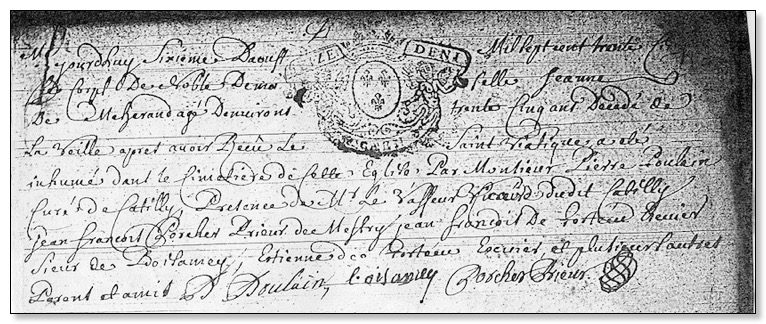 jourdhuy Sixieme Daoust Mil sept cent trente Cinq
Le Corps De Noble Demoi selle Jeanne
De Meherand agé Denviron trente Cinq ans Decedé De
La veille apres avoir Receu Le Saint Viatique a eté
inhumé dans le Cimetiere de Cette Eglise Par Monsieur Pierre Poulain
Curé De Catilly, Presence de Mr Le Vasseur Vicaire dudit Catilly
jean francois Porcher Prieur de Mestry jean francois De Escuier
Sieur de Boisamey, Etienne Escuier, et plusieurs autres
Parens et amis P Poulain, boisamey Porcher Prieur.
DENI